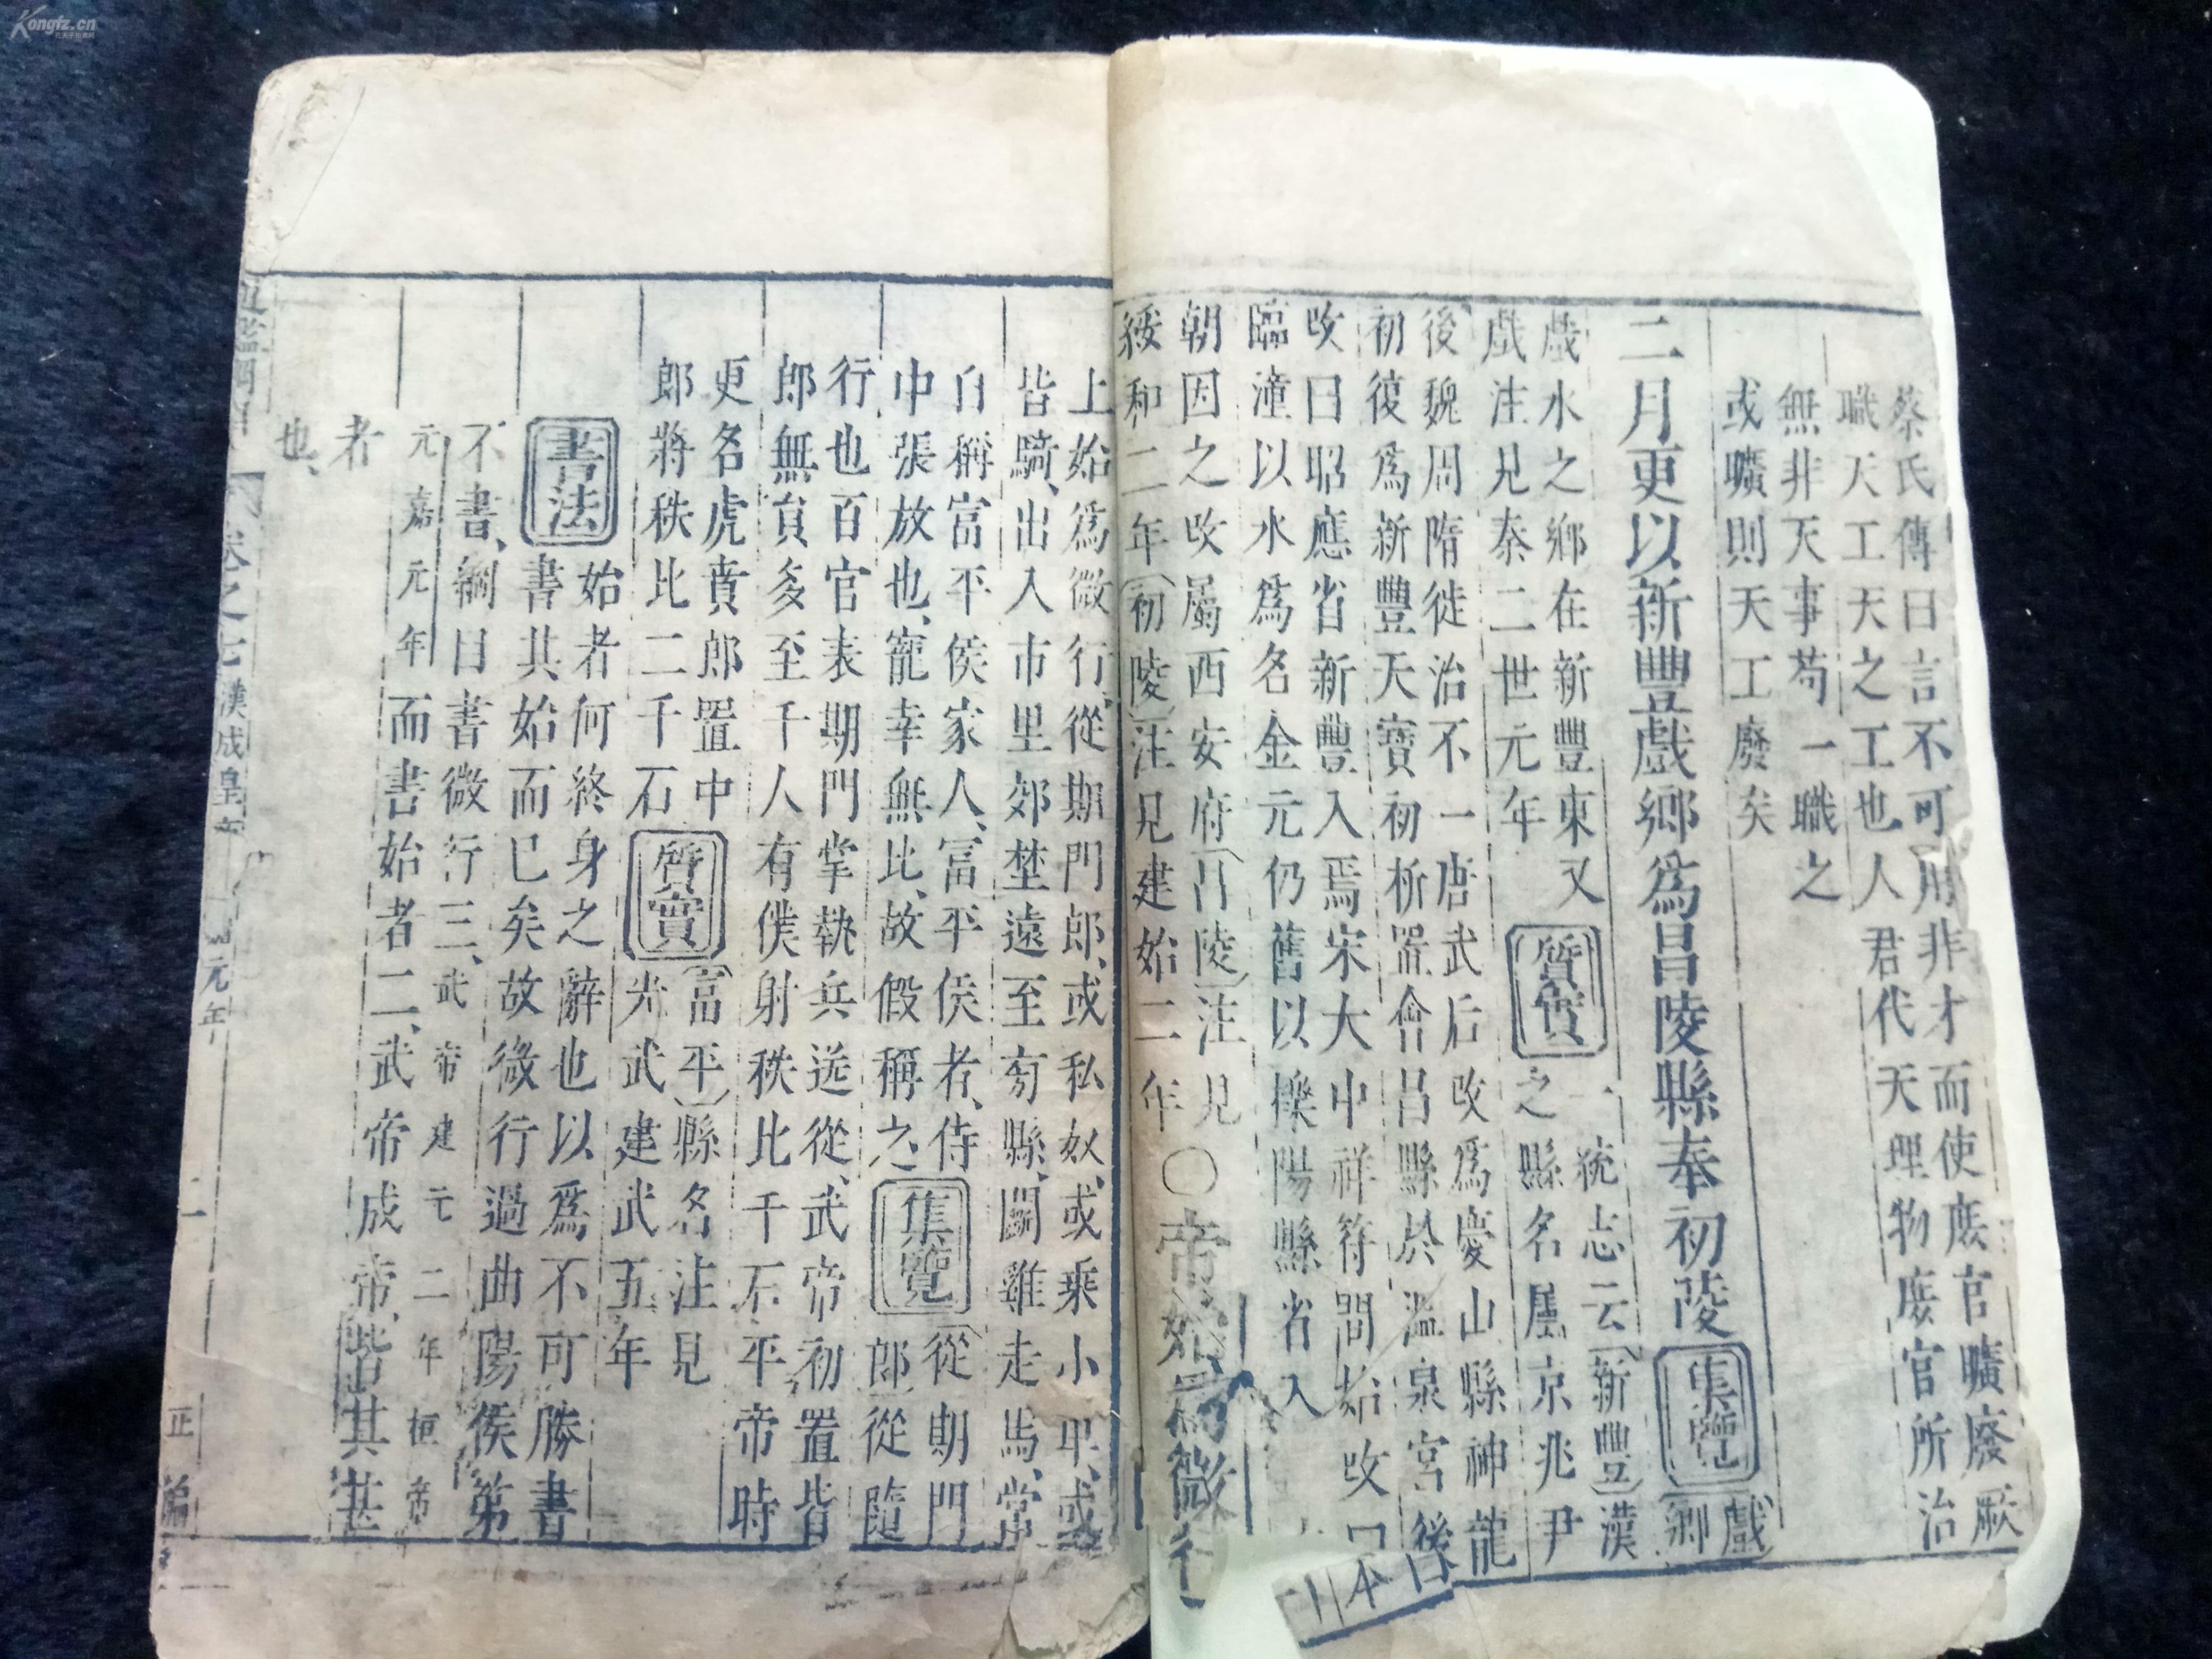 蔡氏傳曰言不可用非才而使庶官曠廢厥
職天工天之工也人君代天理物庶官所治
無非天事苟一職之
或曠則天工廢矣
二月更以新豐戲鄉爲昌陵縣奉初陵
集覽
戲
鄉
戲水之鄉在新豐東又
戲注見秦二世元年
質實
一統志云新豐漢
之縣名屬京兆尹
後魏周隋徙治不一唐武后改爲慶山縣神龍
初復爲新豐天寶初析置會昌縣於溫泉宮後
改曰昭應省新豐入焉宋大中祥符間始改曰
臨潼以水爲名金元仍舊以櫟陽縣省入
本
朝因之改屬西安府昌陵注見
綏和二年初陵注見建始二年
○帝始爲微行
上始爲微行、從期門郎、或私奴、或乘小車、或
皆騎、出入市里郊埜遠至旁縣、鬭雞走馬、常
自稱富平侯家人、富平侯者、侍
中張放也、寵幸無比、故假稱之、
集覽
從期門
郎從隨
行也百官表期門掌執兵送從、武帝初置皆
郎無員多至千人有僕射秩比千石平帝時
更名虎賁郎置中
郎將秩比二千石
質實
富平縣名注見
光武建武五年
書法
始者何終身之辭也以爲不可勝書
書其始而已矣故微行過曲陽侯第
不書、綱目書微行三、武帝建元二年桓帝
元嘉元年而書始者二、武帝成帝、皆其甚
者
也、
卷之七
漢成皇帝
元年
二
正編
Kongfz.cn